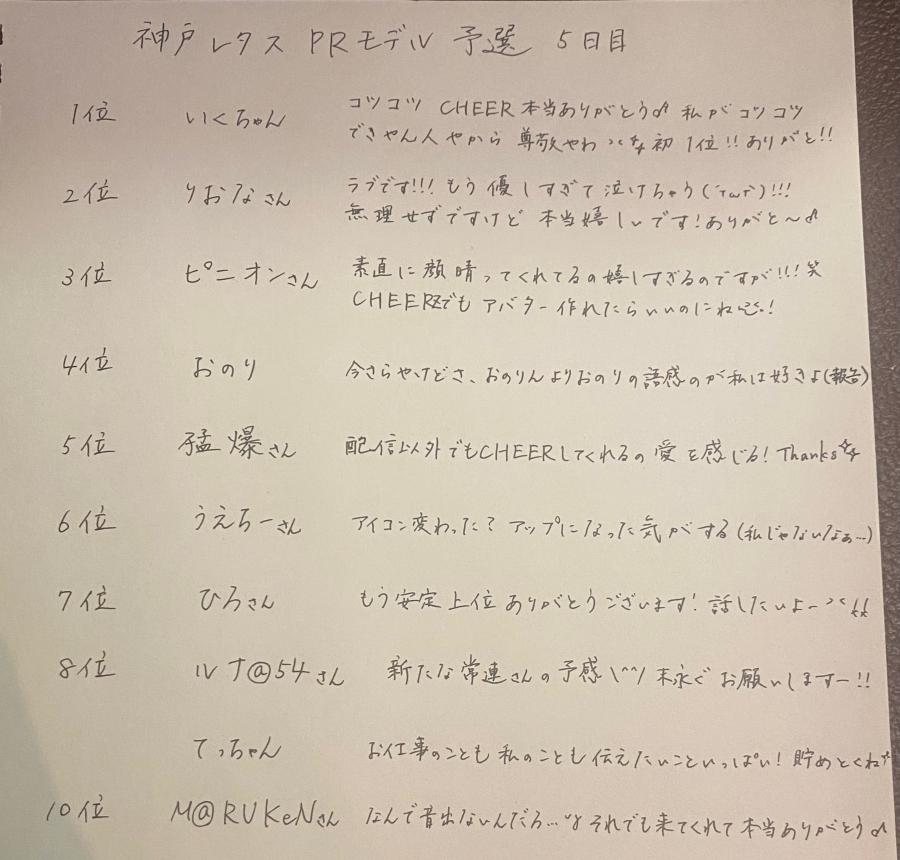 神戸レタス PRモデル 予選 5日目
1位 いくちゃん コツコツ CHEER本当ありがとう♪ 私がコツコツ
できやん人やから 尊敬やわ 初1位!!ありがと!!
2位 りおなさん ラブです!!! もう優しすぎて泣けちゃう(´TωT`)!!!
無理せずですけど 本当嬉しいです!ありがと〜♪
3位 ピニオンさん 素直に顔晴ってくれてるの嬉しすぎるのですが!!!笑
CHEERZでも アバター作れたらいいのにね!
4位 おのり 今さらやけどさ、おのりんよりおのりの語感のが私は好きよ(報告)
5位 猛爆さん 配信以外でもCHEERしてくれるの愛を感じる!Thanks
6位 うえちーさん アイコン変わった? アップになった気がする(私じゃないなぁ…)
7位 ひろさん もう安定上位ありがとうございます!話したいよー
8位 ルナ@54さん 新たな常連さんの予感\^^/ 末永くお願いしますー!!
てっちゃん お仕事のことも私のことも伝えたいこといっぱい!貯めとくね
10位 M@RUKeNさん なんで音出ないんだろ… それでも来てくれて本当ありがとう♪